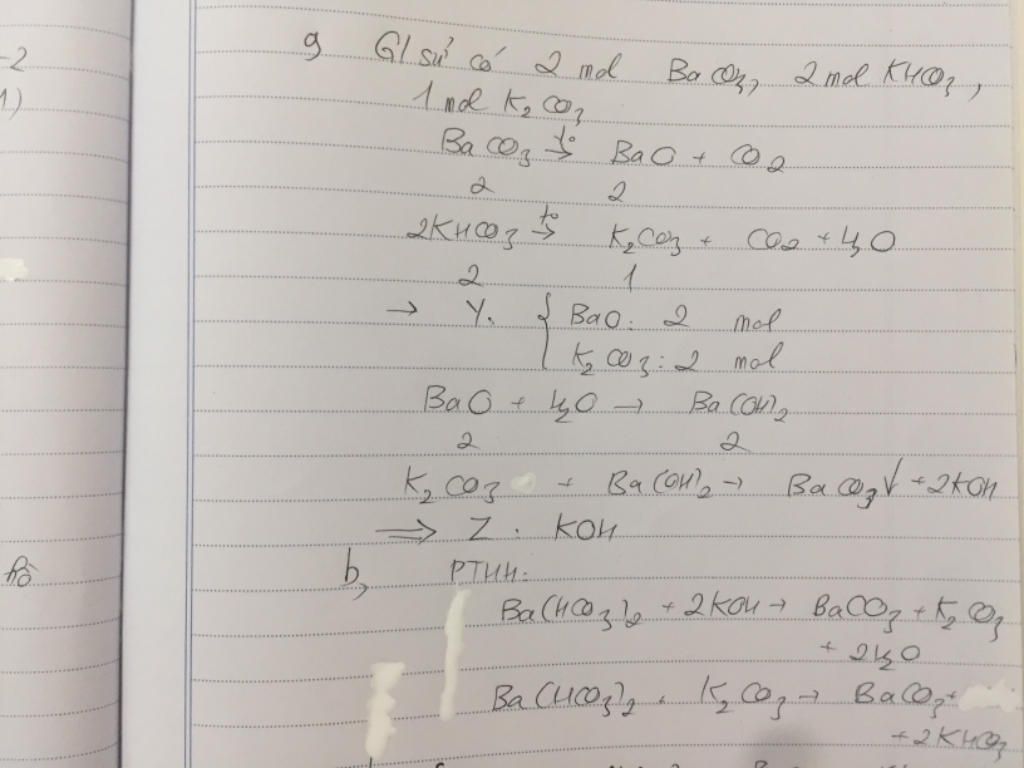 -2
1)
g Gỉ sử có 2 mol BaCO3, 2 mol KHCO3,
1 mol K2CO3
BaCO3 →(t°) BaO + CO2
2 2
2KHCO3 →(t°) K2CO3 + CO2 + H2O
2 1
→ Y. { BaO: 2 mol
K2CO3: 2 mol
BaO + H2O → Ba(OH)2
2 2
K2CO3 + Ba(OH)2 → BaCO3↓ + 2KOH
⇒ Z: KOH
b, PTHH:
Ba(HCO3)2 + 2KOH → BaCO3 + K2CO3
+ 2H2O
Ba(HCO3)2 + K2CO3 → BaCO3 +
+ 2KHCO3